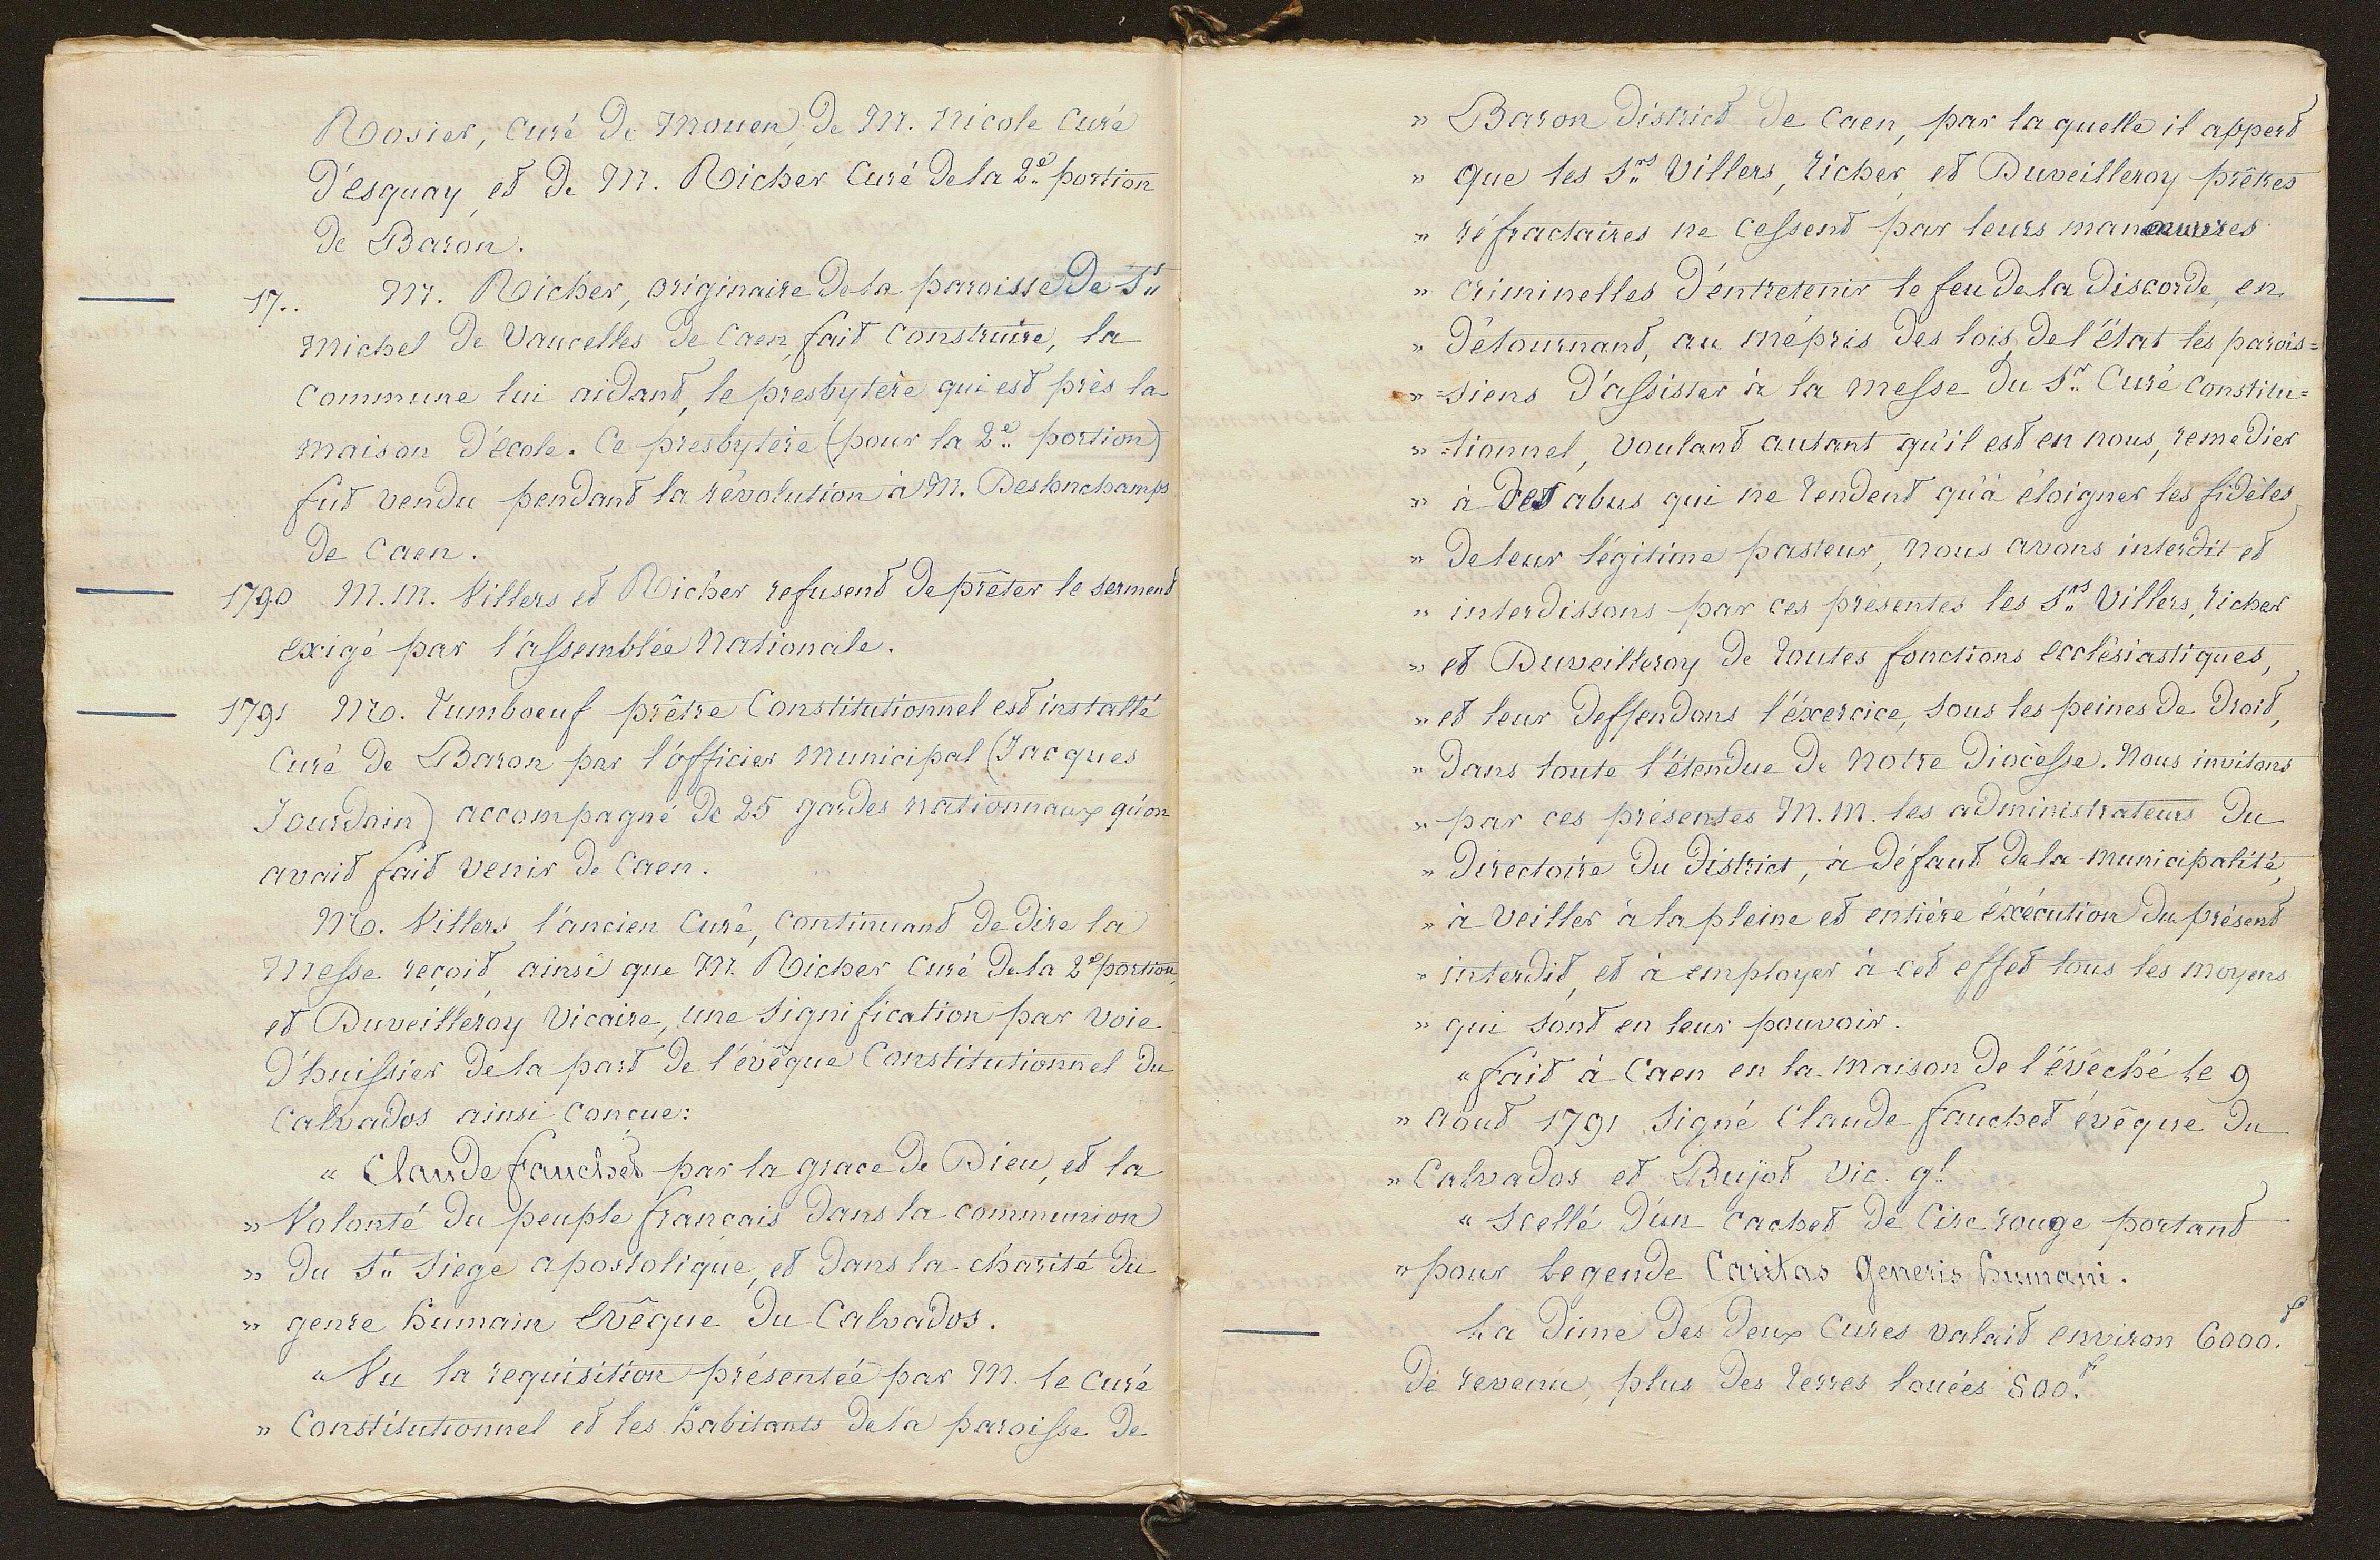 Rosier, curé de Mouen, de Mr. Nicole curé
d'Esquay, et de Mr. Richer curé de la 2e portion
de Baron.
17.. Mr. Richer, originaire de la paroisse de St
Michel de Vaucelles de Caen, fait construire, la
commune lui aidant, le presbytère qui est près la
maison d'école. Ce presbytère (pour la 2e portion)
fut vendu pendant la révolution à M. Deslonchamps
de Caen.
1790 M.M. Villers et Richer refusent de prêter le serment
exigé par l'assemblée Nationale.
1791 Mr. Tumboeuf prêtre Constitutionnel est installé
curé de Baron par l'officier municipal (Jacques
Jourdain) accompagné de 25 gardes nationnaux qu'on
avait fait venir de Caen.
Mr. Villers l'ancien curé, continuant de dire la
messe reçoit, ainsi que M. Richer curé de la 2e portion,
et Duveilleroy vicaire, une signification par voie
d'huissier de la part de l'évêque Constitutionnel du
Calvados ainsi conçue:
" Claude Fauchet par la grace de Dieu, et la
" Volonté du peuple français dans la communion
" du St Siege apostolique, et dans la charité du
" genre humain Evêque du Calvados.
" Vu la requisition présentée par M. le curé
" Constitutionnel et les habitants de la paroisse de
" Baron district de Caen, par laquelle il appert
" que les Srs Villers, Richer, et Duveilleroy prêtres
" réfractaires ne cessent par leurs manoeuvres
" criminelles d'entretenir le feu de la discorde, en
" détournant, au mépris des lois de l'état les parois=
" =siens d'assister à la messe du Sr Curé constitu=
" =tionnel, voulant autant qu'il est en nous, remedier
" à des abus qui ne tendent qu'à éloigner les fidèles
" de leur légitime pasteur, nous avons interdit et
" interdissons par ces présentes les Srs Villers, Richer
" et Duveilleroy de toutes fonctions ecclésiastiques,
" et leur deffendons l'éxercice, sous les peines de droit,
" dans toute l'étendue de notre Diocèsse. Nous invitons
" par ces présentes M.M. les administrateurs du
" Directoire du District, à défaut de la municipalité,
" à veiller à la pleine et entière éxécution du présent
" interdit, et à employer à cet effet tous les moyens
" qui sont en leur pouvoir.
" fait à Caen en la maison de l'évêché le 9
" aout 1791 Signé Claude Fauchet évêque du
" Calvados et Bujot Vic. gl.
" Scellé d'un cachet de cire rouge portant
" pour legende Caritas Generis humani.
La Dime des deux cures valait environ 6000.f
de revenu, plus des terres louées 800.f